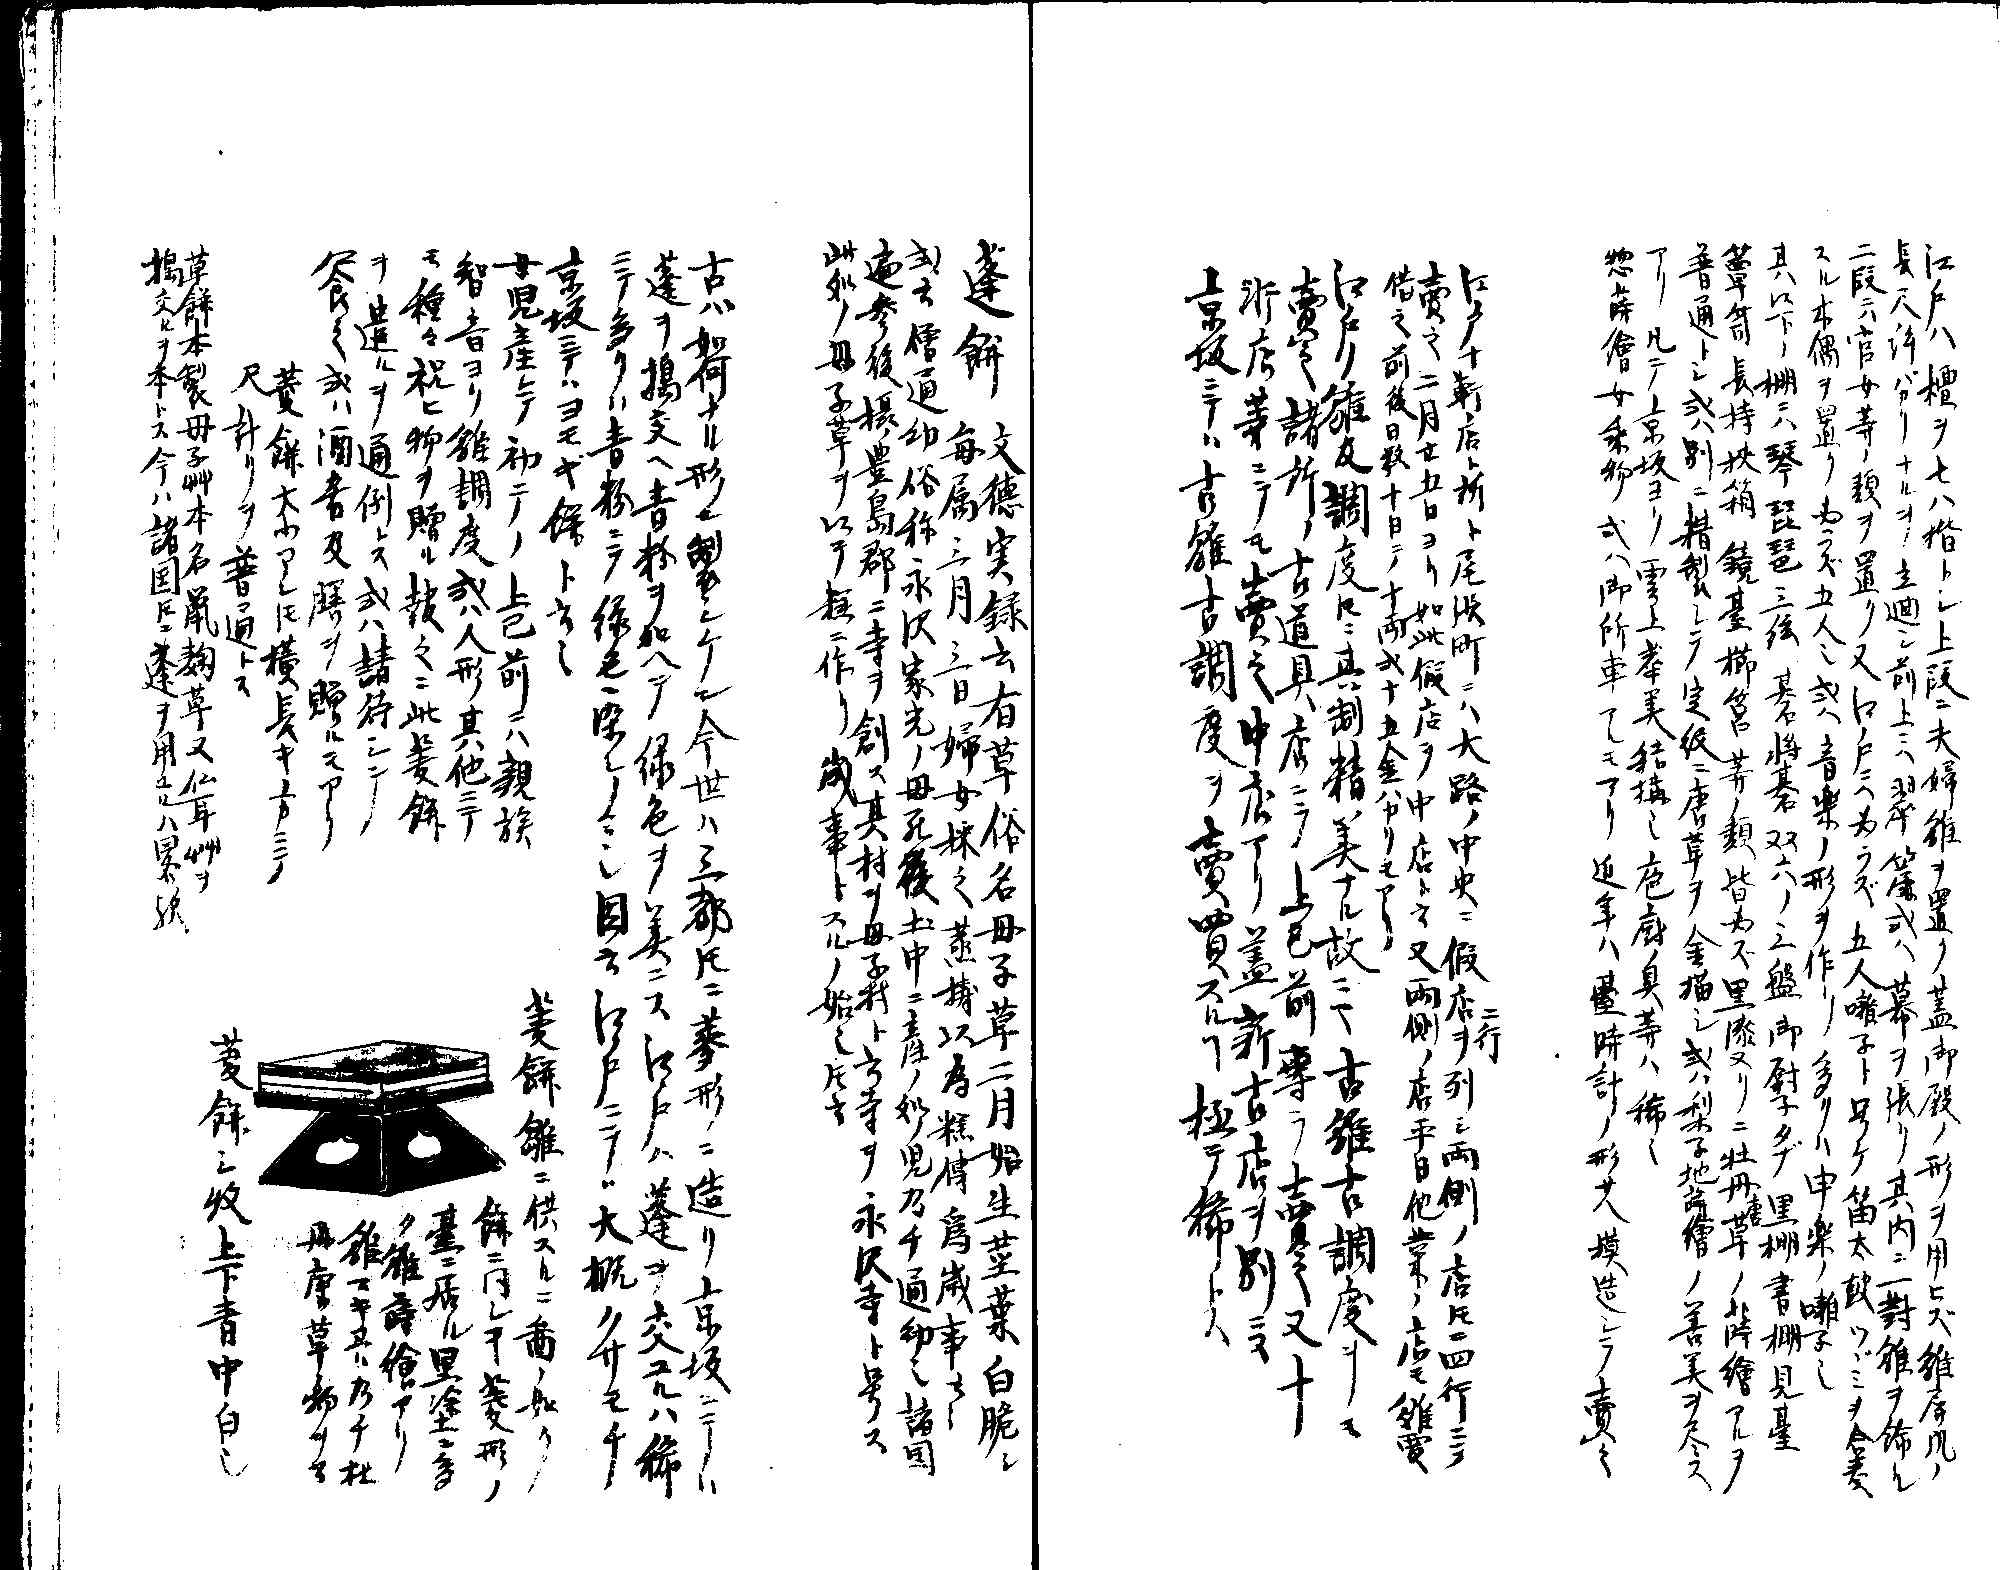 江戸ハ檀ヲ七八楷トシ上段ニ夫婦雛ヲ置ク蓋御殿ノ形ヲ用ヒズ雛屏風ノ
長尺許バカリナルヲ立廻シ前上ニハ翠簾或ハ幕ヲ張リ其内ニ一對雛ヲ飾ル
二段ニハ官女等ノ類ヲ置ク又江戸ニハ必ラズ五人囃子ト号ケ笛太鼓ツヾミヲ合奏
スル木偶ヲ置ク必ラズ五人也或ハ音楽ノ形ヲ作リ多クハ申楽ノ囃子也
其以下ノ棚ニハ琴琵琶三弦碁将棊双六ノ三盤御厨子ダナ黒棚書棚見臺
簟笥長持挾箱鏡臺櫛筥等ノ類皆必ズ黒漆ヌリニ牡丹唐草ノ蒔繪アルヲ
普通トシ或ハ別ニ精製シテ定紋ニ唐草ヲ金描シ或ハ梨子地蒔繪ノ善美ヲ尽ス
アリ凡テ京坂ヨリ雲上華美結構也庖厨ノ具等ハ稀也
惣蒔繪女乗物或ハ御所車テモアリ近年ハ置時計ノ形サヘ模造シテ賣之
江戸ノ十軒店ト所ト尾張町ニハ大路ノ中央ニ假店ヲ二行列シ両側ノ店トモニ四行ニテ
賣之二月廿五日ヨリ如此假店ヲ中店ト云又両側ノ店平日他業ノ店モ雛賈
借之前後日数十日ニテ十両或十五金バカリモアリ
江戸ノ雛及調度トモニ其制精美ナル故ニ古雛古調度ヲモ
賣之諸所ノ古道具店ニテ上巳前専ラ賣之又十
軒店等ニテモ賣之中店アリ蓋新古店ヲ別ニス
京坂ニテハ古雛古調度ヲ賣買スルヿ極テ稀トス
蓬餅　文徳実録云有草俗名母子草二月始生茎葉白脆
毎属三月三日婦女採之蒸擣以為糕傳為歳事云々
或云僧通幼俗称永沢家光ノ母死後土中ニ産ノ処児乃チ通幼也諸国
遍参後攝ノ豊島郡ニ寺ヲ創ス其村ヲ母子村ト云寺ヲ永沢寺ト号ス
此処ノ母子草ヲ以テ糕ニ作リ歳事トスルノ始也トモ云
古ハ如何ナル形ニ製シケン今世ハ三都トモニ菱形ニ造リ京坂ニテハ
蓬ヲ搗交ヘ青粉ヲ加ヘテ緑色ヲ美ニス江戸ハ蓬ヲ交ユルハ稀
ニテ多クハ青粉ニテ緑色ニ染シノミ也因云江戸ニテハ大概クサモチ
京坂ニテハヨモギ餅ト云也
女児産レテ初テノ上巳前ニハ親族
智音ヨリ雛調度或ハ人形其他ニテ
モ種々祝ヒ物ヲ贈ル報之ニ此菱餅
ヲ遣ルヲ通例トス或ハ請待シテ
食之或ハ酒肴及膳ヲ贈ルモアリ
菱餅大小アレドモ横長キ方ニテ
尺計リヲ普通トス
草餅本製母子艸本名鼠麹草又仏耳艸ヲ
搗交ルヲ本トス今ハ諸国トモニ蓬ヲ用ユルハ畧歟
菱餅雛ニ供スルニ圖ノ如ク
餅ニ同シキ菱形ノ
臺ニ居ル黒塗ニ多
ク雛蒔繪アリ
雛マキヱハ乃チ牡
丹唐草ノ物ヲ云
菱餅三枚上下青中白也